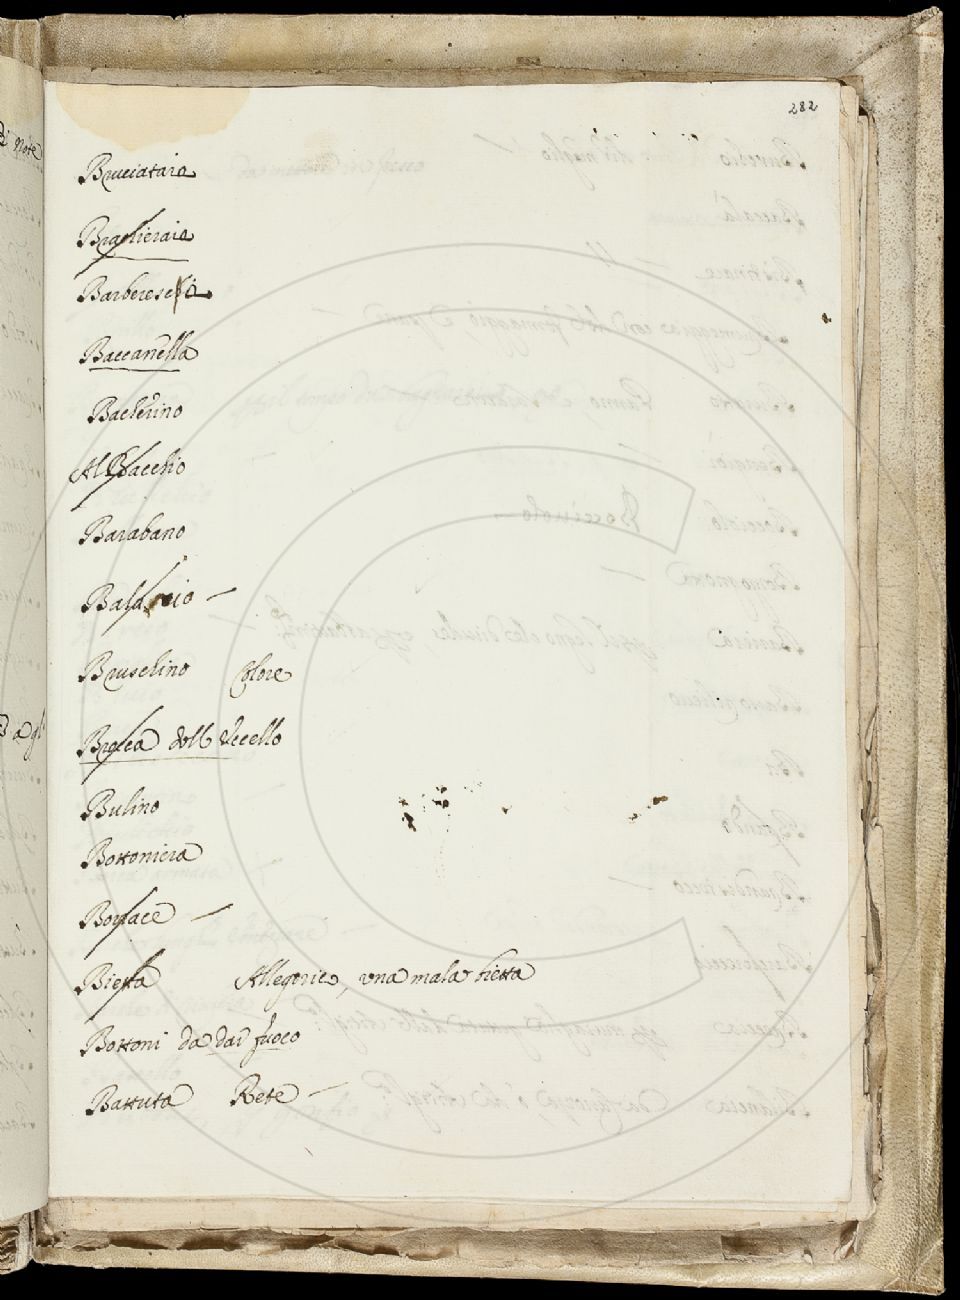 282
Bruciataio
Braghieraio
Barberesco
Baccanella
Bacherino
Al Bacchio
Barabano
Bruschino Colore
Brocca dell Uccello
Bulino
Bottoniera
Borrace
Bietta Allegorie, una mala bietta
Bottoni da dar fuoco
Battuta Rete